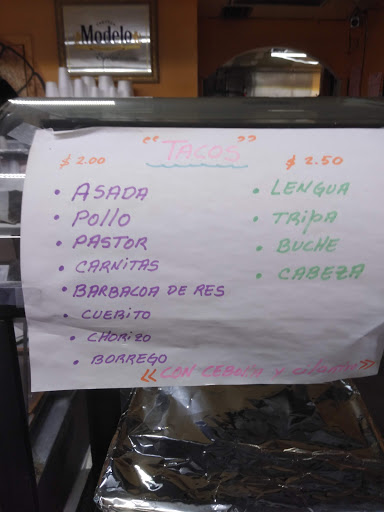 Modelo
"TACOS"
$ 2.00
• ASADA
• Pollo
• PASTOR
• CARNITAS
• BARBACOA DE RES
• CUERITO
• CHORIZO
• BORREGO
$ 2.50
• LENGUA
• TRIPA
• BUCHE
• CABEZA
«CON CEBOLLA Y CILANTRO»